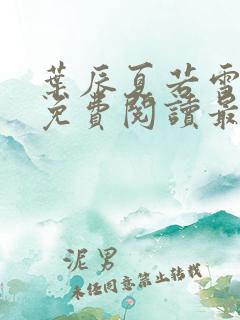 葉辰夏若雪
免費閱讀最
泥男
未经同意禁止转载